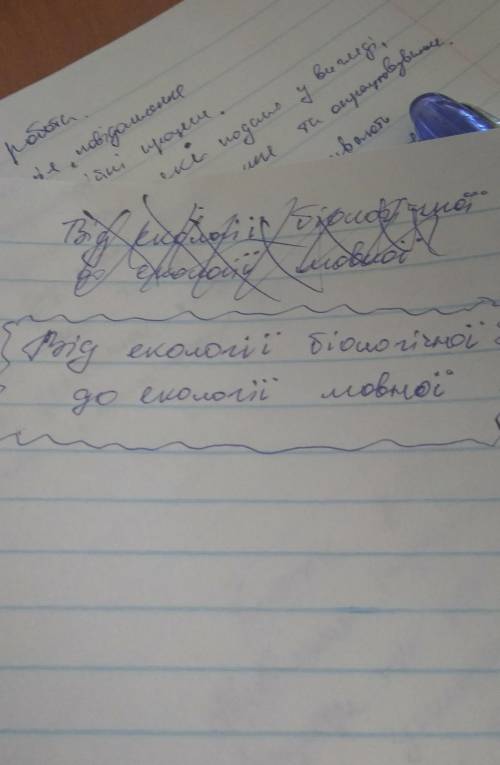 работа.
повідомлення
процеси.
подана у вигляді,
та опрацьовування.
Від екології біологічної
до екології мовної
Від екології біологічної
до екології мовної